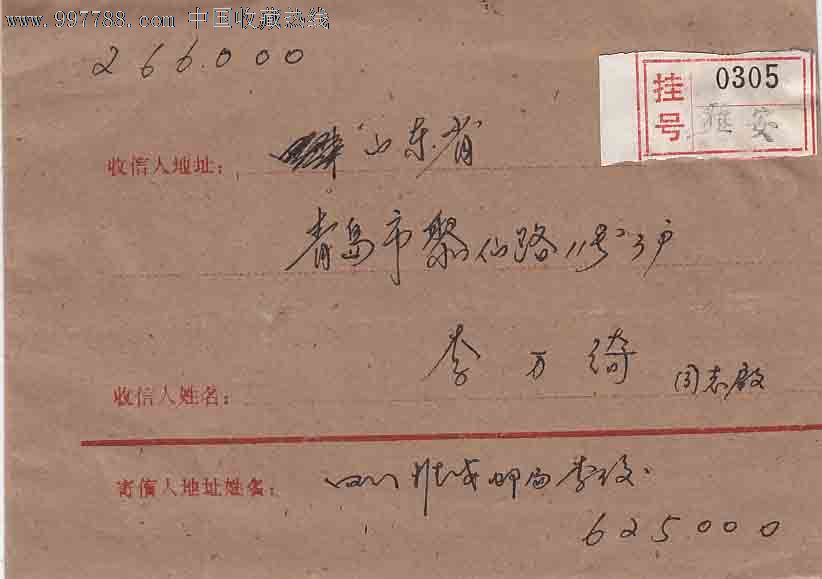 www.997788.com 中国收藏热线
266000
挂号 0305
雅安
收信人地址: 山东省
青岛市聚仙路11号2户
李万绮 同志启
收信人姓名:
寄信人地址姓名: 四川雅安邮局李
625000